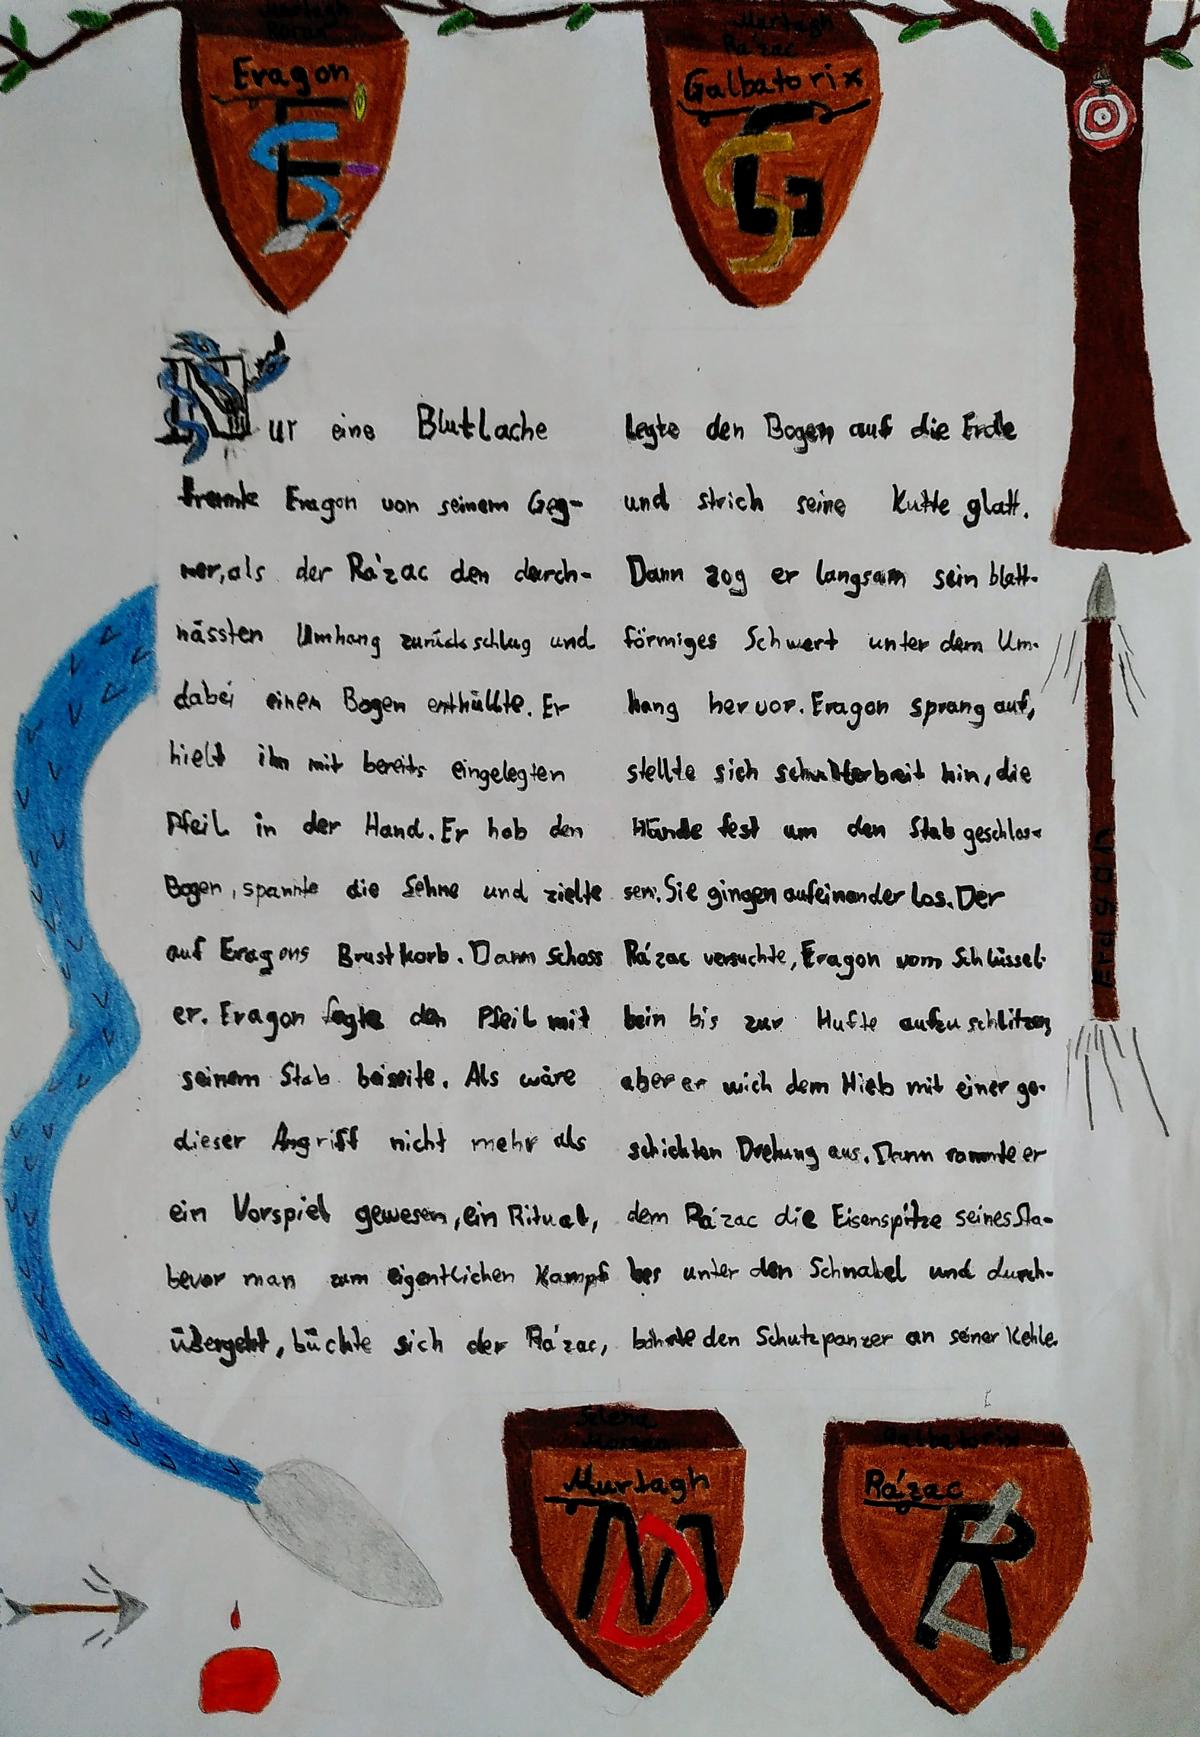 Murtagh
Roran
Eragon
E
Murtagh
Ra'zac
Galbatorix
G
Nur eine Blutlache
trennte Eragon von seinem Geg-
ner, als der Ra'zac den durch-
nässten Umhang zurückschlug und
dabei einen Bogen enthüllte. Er
hielt ihn mit bereits eingelegten
Pfeil in der Hand. Er hob den
Bogen, spannte die Sehne und zielte
auf Eragons Brustkorb. Dann schoss
er. Eragon fegte den Pfeil mit
seinem Stab beiseite. Als wäre
dieser Angriff nicht mehr als
ein Vorspiel gewesen, ein Ritual,
bevor man zum eigentlichen Kampf
übergeht, bückte sich der Ra'zac,
legte den Bogen auf die Erde
und strich seine Kutte glatt.
Dann zog er langsam sein blatt-
förmiges Schwert unter dem Um-
hang hervor. Eragon sprang auf,
stellte sich schulterbreit hin, die
Hände fest um den Stab geschlos-
sen. Sie gingen aufeinander los. Der
Ra'zac versuchte, Eragon vom Schlüssel-
bein bis zur Hüfte aufzuschlitzen,
aber er wich dem Hieb mit einer ge-
schickten Drehung aus. Dann rammte er
dem Ra'zac die Eisenspitze seines Sta-
bes unter den Schnabel und durch-
bohrte den Schutzpanzer an seiner Kehle.
Eragon
Selena
Morzan
Murtagh
M
Galbatorix
Ra'zac
R